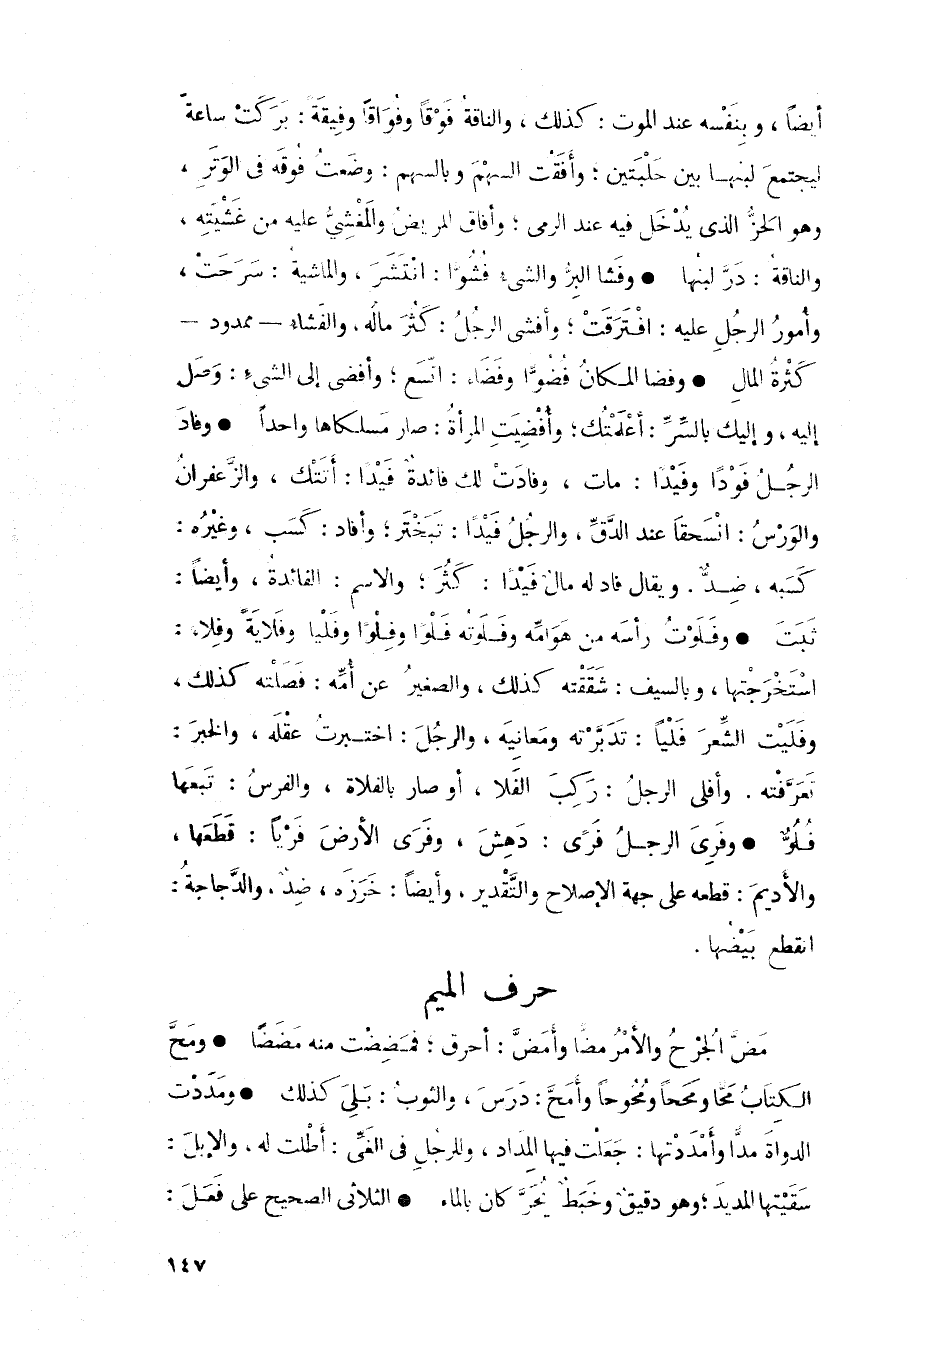 أيضاً ، و بِنَفْسه عند الموت : كذلك ، والناقةُ فَوْقاً وفُوَاقاً وفِيقَةً : بَرَكَتْ ساعةً
ليجتمعَ لبنهـا بين حَلْبَتَين ؛ وأَفَقْت السهْمَ و بالسهم : وضَعتُ فُوقَه فى الوَتَرِ ،
وهو الحَزُّ الذى يُدْخَل فيه عند الرمى ؛ وأفاق المريضُ والمَغْشِيُّ عليه من غَشْيَتِهِ ،
والناقةُ : دَرَّ لبنُها ● وفَشا البِرُّ والشىءُ فُشُوًّا : انْتَشَرَ ، والماشيةُ : سَرَحَتْ ،
وأُمورُ الرجُلِ عليه : افْتَرَقَتْ ؛ وأفشى الرجُلُ : كَثُرَ مالُه ، والفَشاء — ممدود —
كَثْرةُ المالِ ● وفضا المـكانُ فُضُوًّا وفَضَاء : اتّسَع ؛ وأفضى إلى الشىءِ : وَصَل
إليه ، و إليك بالسِّرِّ : أعْلَمْتُك ؛ وأُفْضِيَتِ المرأةُ : صار مَسلـكاها واحداً ● وفادَ
الرجُـلُ فَوْدًا وفَيْدًا : مات ، وفادَتْ لك فائدةٌ فَيْدًا : أتَتْك ، والزَّعفرانُ
والوَرْسُ : انْسَحقا عند الدَّقِّ ، والرجُلُ فَيْدًا : تَبَخْتَر ؛ وأفاد : كَسَب ، وغيْرُه :
كَسَبه ، ضِـدٌّ . ويقال فاد له مالٌ فَيْدًا : كَثُرَ ؛ والاسم : الفائدةُ ، وأيضاً :
ثَبَتَ ● وفَـلَوْتُ رأسَه من هَوَامِّه وفَـلَوتُه فَـلْوًا وفِـلْوًا وفَلْيا وفِلَايَةً وفِلاء :
اسْتَخْرَجْتها ، و بالسيف : شَقَقْته كذلك ، والصغيرُ عن أُمِّه : فَصَلْته كذلك ،
وفَلَيْت الشِّعرَ فَلْياً : تَدَبَّرْته ومَعانِيَه ، والرجُلَ : اختـبرتُ عقْلَه ، والخبرَ :
تَعَرَّفْته . وأفلى الرجلُ : رَكِبَ الفَلا ، أو صار بالفلاة ، والفرسُ : تَبعَها
فُـلُوٌّ ● وفَرِىَ الرجـلُ فَرًى : دَهِشَ ، وفَرَى الأرضَ فَرْياً : قَطَعَها ،
والأَديمَ : قطعه على جهة الإصلاح والتَّقْدير . وأيضاً : خَرَزَه ، ضِدٌّ . والدَّجاجةُ :
انقطع بَيْضُها .
حرف الميم
مَضَّ الجُرْحُ والأَمْرُ مضًّا وأَمَضَّ : أحرق ؛ فمَـضِضْت منه مَضَضًا ● ومَحَّ
الـكِتابُ مَحًّا ومَحَحاً ومُحُوحاً وأَمَحَّ : دَرَسَ ، والثوبُ : بَـلِىَ كذلك ● ومَدَدْت
الدواةَ مدًّا وأَمْدَدْتها : جَعَلْت فيها المِداد ، وللرجُلِ فى الغَىِّ : أَطْلت له ، والإبلَ :
سَقَيْتها المديدَ ؛ وهو دقيقٌ وخَبَطٌ يُحَرَّ كان بالماء ● الثلاثى الصحيح على فَعَـلَ :
١٤٧